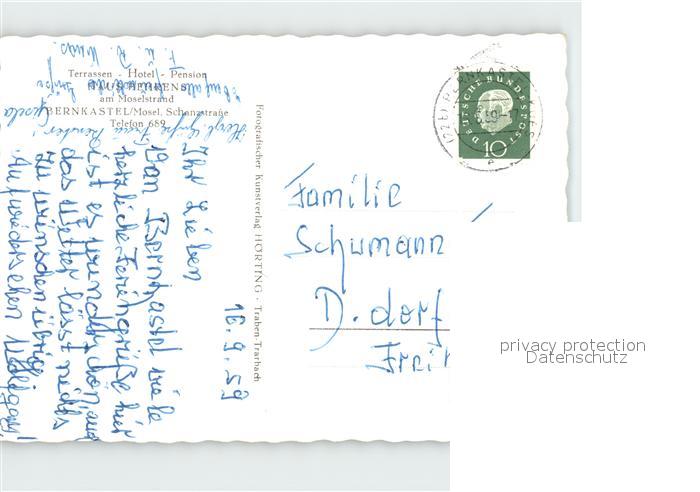 Terrassen - Hotel - Pension
HAUS BEHRENS
am Moselstrand
BERNKASTEL/Mosel, Schanzstraße
Telefon 689
Fotografischer Kunstverlag HÖRTING · Traben-Trarbach
DEUTSCHE BUNDESPOST
10
16.9.59
Ihr Lieben
Von Bernkastel viele
herzliche Feriengrüße hier
ist es wunderschön auch
das Wetter lässt nichts
zu wünschen übrig.
Auf wiedersehen Wolfgang!
Herzl. Grüße
Gisela
Familie
Schumann
D.dorf
privacy protection
Datenschutz